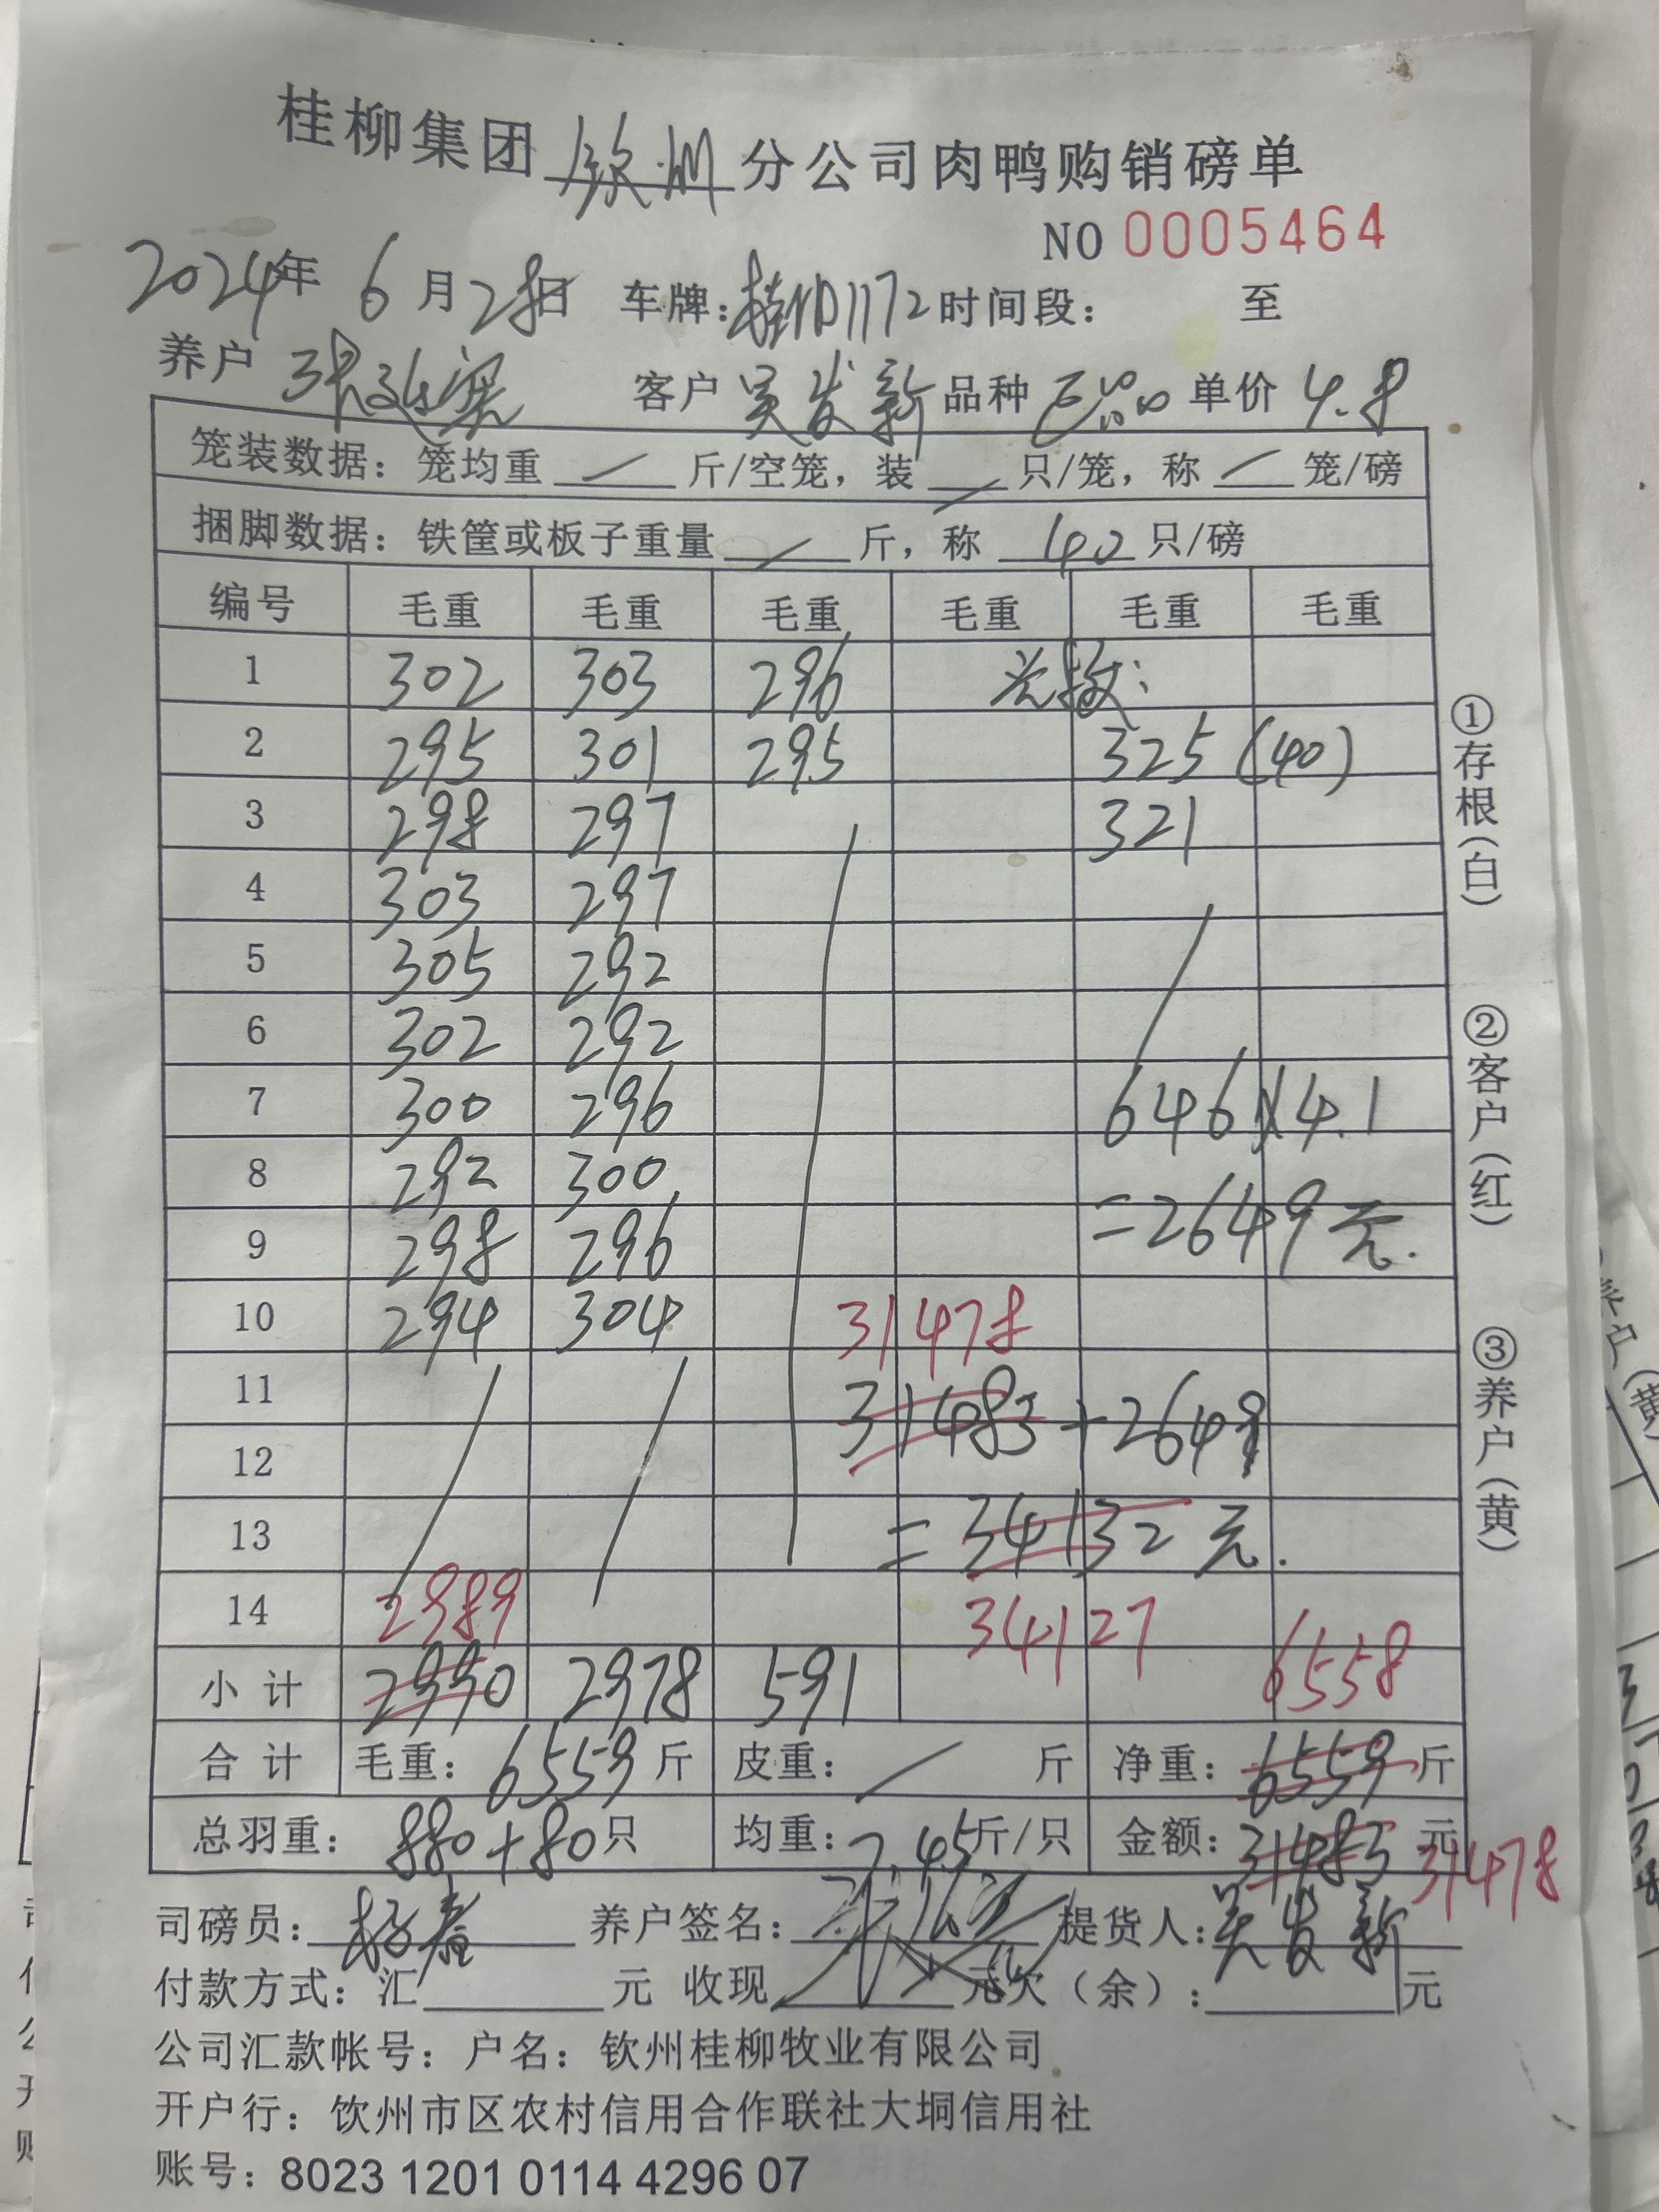 桂柳集团 钦州 分公司肉鸭购销磅单
NO 0005464
2024年 6月28日 车牌: 1172 时间段: 至
养户 张 客户 吴发新 品种 单价 4.8
笼装数据: 笼均重 / 斤/空笼, 装 / 只/笼, 称 / 笼/磅
捆脚数据: 铁筐或板子重量 / 斤, 称 40 只/磅
编号 毛重 毛重 毛重 毛重 毛重 毛重
1 302 303 296 数:
2 295 301 295 325 (40)
3 298 297 321
4 303 297
5 305 292
6 302 292
7 300 296 646×4.1
8 292 300
9 298 296 =2649元.
10 294 304 31478
11 31483+2649
12
13 =34132元.
14 2989 34127
小计 2990 2978 591 6558
合计 毛重: 6559 斤 皮重: / 斤 净重: 6559 斤
总羽重: 880+80只 均重: 7.45斤/只 金额: 31483 元 31478
司磅员: 杨春 养户签名: 提货人: 吴发新
付款方式: 汇 元 收现 元 欠（余）: 元
公司汇款帐号: 户名: 钦州桂柳牧业有限公司
开户行: 钦州市区农村信用合作联社大垌信用社
账号: 8023 1201 0114 4296 07
①存根(白)
②客户(红)
③养户(黄)